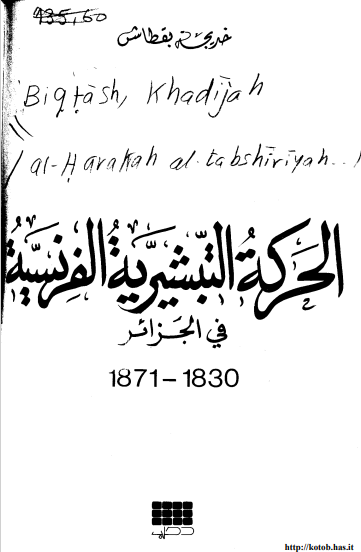 935,60
خديجة بقطاش
Biqṭāsh, Khadījah
/ al-Ḥarakah al-tabshīrīyah../
الحركة التبشيرية الفرنسية
في الجزائر
1871-1830
دحلب
http://kotob.has.it